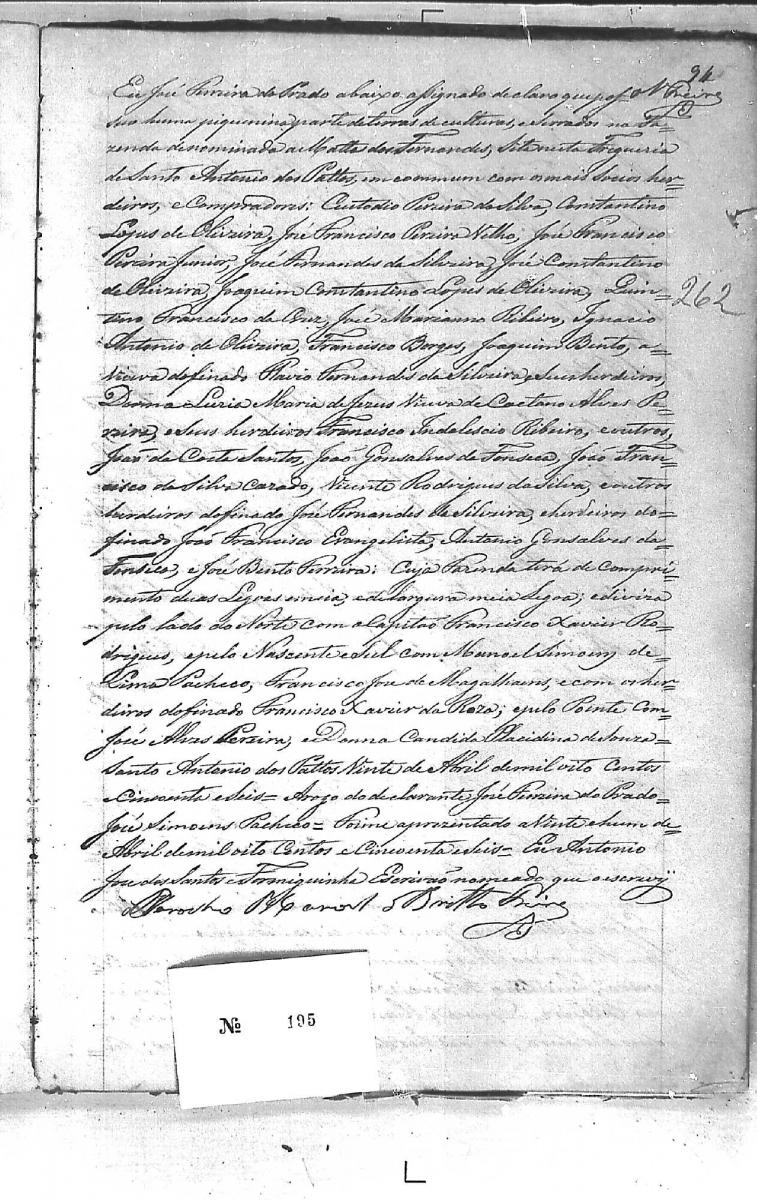 94
N Freire
Eu José Pereira do Prado abaixo assignado declaro que pos=
suo huma piquenina parte de terras de culturas, e serrados na Fa=
zenda denominada a Matta dos Fernandes, Sita nesta Freguezia
de Santo Antonio dos Pattos, em commum com os mais socios her=
deiros, e Compradores: Custodio Pereira da Silva, Constantino
Lopes de Oliveira, José Francisco Pereira Velho, José Francisco
Pereira Junior, José Fernandes da Silveira, José Constantino
de Oliveira, Joaquim Constantino Lopes de Oliveira, Quin=
tino Francisco da Cruz, José Marianno Ribeiro, Ignacio
262
Antonio de Oliveira, Francisco Borges, Joaquim Bento, a=
viuva do finado Flavio Fernandes da Silveira, e seus herdeiros,
Donna Luzia Maria de Jezus Viuva de Caetano Alves Pe=
reira, e seus herdeiros Francisco Indalescio Ribeiro, e outros,
João da Costa Santos, João Gonsalves da Fonseca, João Fran=
cisco da Silva cazado, Vicente Rodrigues da Silva, e outros
herdeiros do finado José Fernandes da Silveira, e herdeiros do=
finado José Francisco Evangelista, Antonio Gonsalves da=
Fonseca, e José Bento Ferreira: Cuja Fazenda terá de Compri=
mento duas Legoas e meia, e de largura meia Legoa; e diviza
pelo lado do Norte com o Capitaõ Francisco Xavier Ro=
drigues, e pelo Nascente e Sul com Manoel Simoens de=
Lima Pacheco, Francisco José de Magalhaens, e com os her=
deiros do finado Francisco Xavier da Roza; e pelo Poente Com
José Alves Pereira, e Donna Candida Placidina de Souza=
Santo Antonio dos Pattos Vinte de Abril de mil oito Centos
e Cincoenta e Seis= Arogo do declarante José Pereira do Prado=
José Simoens Pacheco= Foime aprezentado a Vinte e hum de=
Abril de mil oito Centos e Cincoenta e seis= Eu Antonio
José dos Santos e Formiguinha Escrivaõ nomeado que o escrevy
O Parocho Manoel Britto Freire
Nº 195